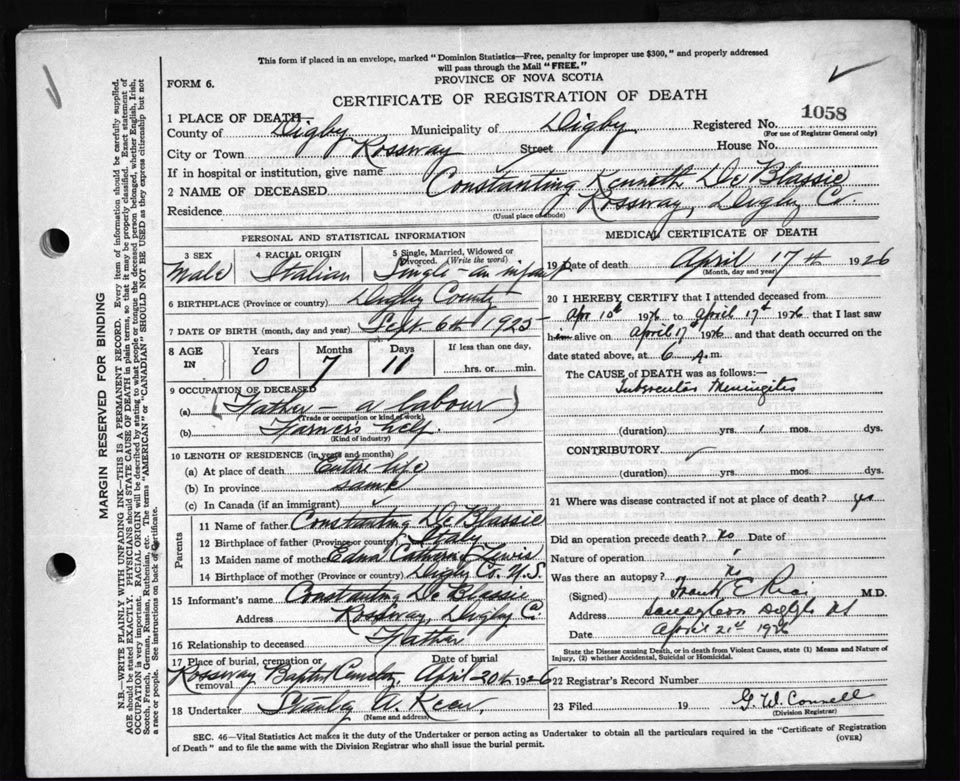 This form if placed in an envelope, marked "Dominion Statistics—Free, penalty for improper use $300," and properly addressed
will pass through the Mail "FREE."
FORM 6.
PROVINCE OF NOVA SCOTIA
CERTIFICATE OF REGISTRATION OF DEATH
1058
1 PLACE OF DEATH—
County of Digby Municipality of Digby Registered No.
(For use of Registrar General only)
City or Town Rossway Street House No.
If in hospital or institution, give name
2 NAME OF DECEASED Constanting Kenneth De Blassie
Residence Rossway, Digby Co.
(Usual place of abode)
MARGIN RESERVED FOR BINDING
N.B.—WRITE PLAINLY WITH UNFADING INK—THIS IS A PERMANENT RECORD. Every item of information should be carefully supplied.
AGE should be stated EXACTLY. PHYSICIANS should STATE CAUSE OF DEATH in plain terms, so that it may be properly classified. Exact statement of
OCCUPATION is very important. RACIAL ORIGIN will be described by stating to what people or tongue the deceased person belonged, whether English, Irish,
Scotch, French, German, Russian, Ruthenian, etc. The terms "AMERICAN" or "CANADIAN" SHOULD NOT BE USED as they express citizenship but not
a race or people. See instructions on back of Certificate.
PERSONAL AND STATISTICAL INFORMATION
3 SEX
Male
4 RACIAL ORIGIN
Italian
5 Single, Married, Widowed or
Divorced. (Write the word)
Single - an infant
6 BIRTHPLACE (Province or country) Digby County
7 DATE OF BIRTH (month, day and year) Sept. 6th 1925
8 AGE IN
Years Months Days If less than one day,
0 7 11 hrs. or min.
9 OCCUPATION OF DECEASED
(a) (Father - a labour)
(Trade or occupation or kind of work)
(b) Farmers help.
(Kind of industry)
10 LENGTH OF RESIDENCE (in years and months)
(a) At place of death Entire life
(b) In province same
(c) In Canada (if an immigrant)
Parents
11 Name of father Constanting De Blassie
12 Birthplace of father (Province or country) Italy
13 Maiden name of mother Edna Catharine Lewis
14 Birthplace of mother (Province or country) Digby Co. N.S.
15 Informant's name Constanting De Blassie
Address Rossway, Digby Co.
16 Relationship to deceased Father
17 Place of burial, cremation or removal Date of burial
Rossway Baptist Cemetery April 20th 1926
18 Undertaker Stanley A.
(Name and address)
MEDICAL CERTIFICATE OF DEATH
19 Date of death April 17th 1926
(Month, day and year)
20 I HEREBY CERTIFY that I attended deceased from
Apr 10th 1926 to April 17th 1926 that I last saw
him alive on April 17th 1926 and that death occurred on
date stated above, at 6 A.m.
The CAUSE OF DEATH was as follows:—
Tubercular Meningitis
(duration) yrs. 1 mos. dys.
CONTRIBUTORY
(duration) yrs. mos. dys.
21 Where was disease contracted if not at place of death? yes
Did an operation precede death? no Date of
Nature of operation
Was there an autopsy? No
(Signed) Frank E Rice M.D.
Address Digby
Date April 21st 1926
State the Disease causing Death, or in death from Violent Causes, state (1) Means and Nature of
Injury, (2) whether Accidental, Suicidal or Homicidal.
22 Registrar's Record Number
23 Filed 19 G. W. Connell
(Division Registrar)
SEC. 46—Vital Statistics Act makes it the duty of the Undertaker or person acting as Undertaker to obtain all the particulars required in the "Certificate of Registration
of Death" and to file the same with the Division Registrar who shall issue the burial permit.
(OVER)